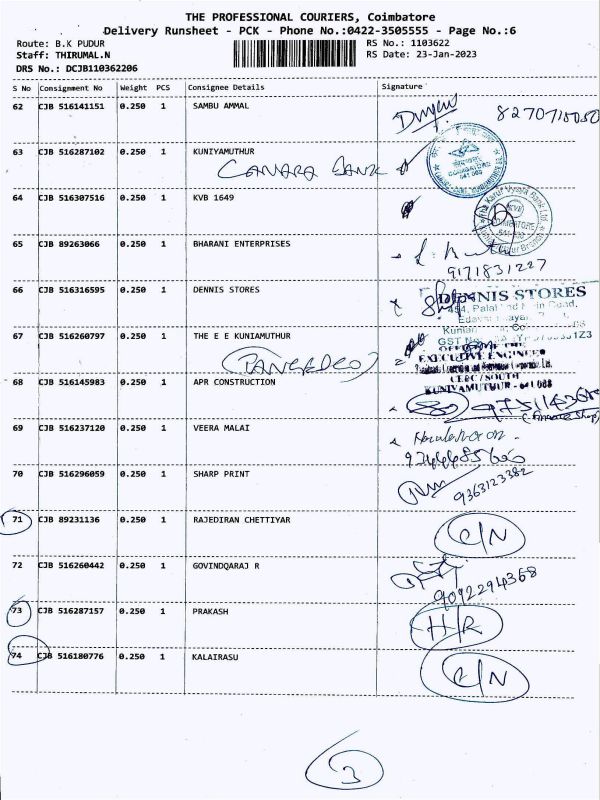 THE PROFESSIONAL COURIERS, Coimbatore
Delivery Runsheet - PCK - Phone No.:0422-3505555 - Page No.:6
Route: B.K PUDUR RS No.: 1103622
Staff: THIRUMAL.N RS Date: 23-Jan-2023
DRS No.: DCJB110362206
S No Consignment No Weight PCS Consignee Details Signature
62 CJB 516141151 0.250 1 SAMBU AMMAL
63 CJB 516287102 0.250 1 KUNIYAMUTHUR
CANARA BANK
64 CJB 516307516 0.250 1 KVB 1649
65 CJB 89263066 0.250 1 BHARANI ENTERPRISES
9171831227
66 CJB 516316595 0.250 1 DENNIS STORES
DENNIS STORES
67 CJB 516260797 0.250 1 THE E E KUNIAMUTHUR
(TANGEDCO)
EXECUTIVE ENGINEER
CEDC/SOUTH
KUNIYAMUTHUR - 641 008
68 CJB 516145983 0.250 1 APR CONSTRUCTION
69 CJB 516237120 0.250 1 VEERA MALAI
70 CJB 516296059 0.250 1 SHARP PRINT
9363123382
71 CJB 89231136 0.250 1 RAJEDIRAN CHETTIYAR
C/N
72 CJB 516260442 0.250 1 GOVINDQARAJ R
9092294368
73 CJB 516287157 0.250 1 PRAKASH
H/R
74 CJB 516180776 0.250 1 KALAIRASU
C/N
3